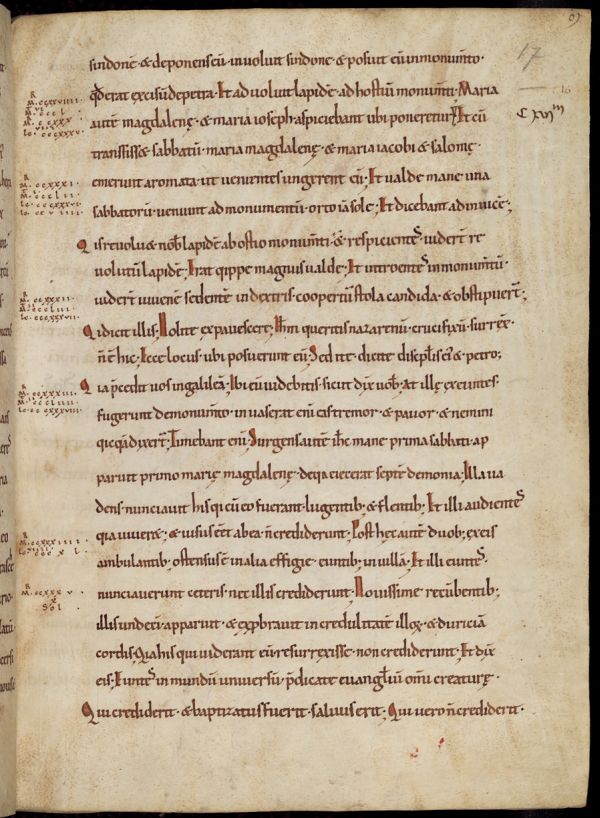 sindonē & deponens eū inuoluit sindone & posuit eū in monum̄to.
qđ erat excisū de petra. Et aduoluit lapidē ad hostiū monum̄ti. Maria
autē magdalenę. & maria ioseph aspiciebant ubi poneretur. Et cū
transiss& sabbatū. maria magdalenę & maria iacobi & salomę
emerunt aromata. ut uenientes ungerent eū. Et ualde mane una
sabbatorū. ueniunt ad monumentū. orto iā sole. Et dicebant adinuicē;
Quis reuolu& nob lapidē ab ostio monum̄ti. & respicientes uidert̄ re
uolutū lapidē; Erat quippe magnus ualde; Et introentes in monum̄tū.
uidert̄ iuuenē sedentē in dextris. coopertū stola candida. & obstipuert̄;
Qui dicit illis; Nolite expauescere; Ihm̄ queritis nazarenū. crucifixū. surrex̄.
n̄ ē hic; Ecce locus ubi posuerunt eū; Sed ite. dicite discipl̄is ei & petro;
Quia p̄cedit uos in galileā; Ibi eū uidebitis. sicut dix̄ uob. At illę exeuntes
fugerunt de monum̄to. inuaserat enī eis tremor. & pauor & nemini
qicqā dixert̄; Timebant enī. Surgens autē ih̄c mane prima sabbati. ap
paruit primo marię magdalenę. de qua eiecerat septē demonia; Illa ua
dens. nunciauit his qui cū eo fuerant. lugentib; & flentib; Et illi audientes
quia uiuer&; & uisus ēet ab ea. n̄ crediderunt; Post hęc autē duob; ex eis
ambulantib; ostensus ē in alia effigie. euntib; in uillā; Et illi euntes.
nunciauerunt ceteris. nec illis crediderunt. Nouissime recūbentib;
illis undecī. apparuit. & exprobrauit incredulitatē illoꝝ. & duriciā
cordis. Quia his qui uiderant eū resurrexisse. non crediderunt; Et dix̄
eis; Euntes in mundū uniuersū. p̄dicate euangl̄iū om̄i creaturę.
Qui crediderit. & baptizatus fuerit. saluus erit; Qui uero n̄ crediderit.
17